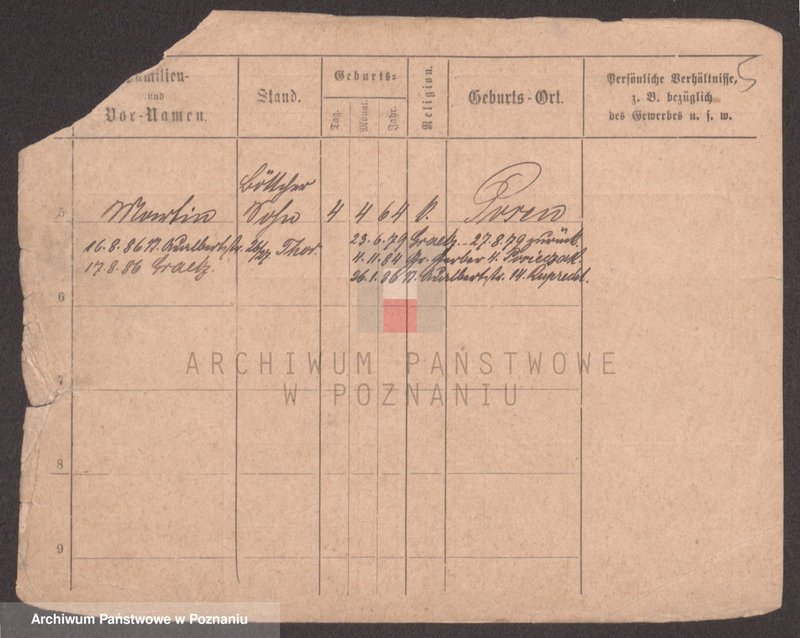 Familien-
und
Vor-Namen.
Stand.
Geburts-
Tag.
Monat.
Jahr.
Religion.
Geburts-Ort.
Persönliche Verhältnisse,
z. B. bezüglich
des Gewerbes u. s. w.
5
5
Böttcher
Martin Sohn 4 4 64 Posen
16.8.86 Adalbertstr. 26/27 Thor.
17.8.86 Graetz.
23.6.79 Graetz. 27.8.79 zurück.
4.11.84 Gr. Gerber 4.
26.1.86 Adalbertstr. 14 Ruprecht.
6
7
8
9
ARCHIWUM PAŃSTWOWE
W POZNANIU
Archiwum Państwowe w Poznaniu